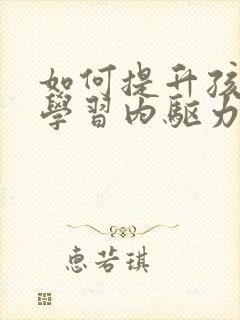 如何提升孩
學習内驅力
恵若琪